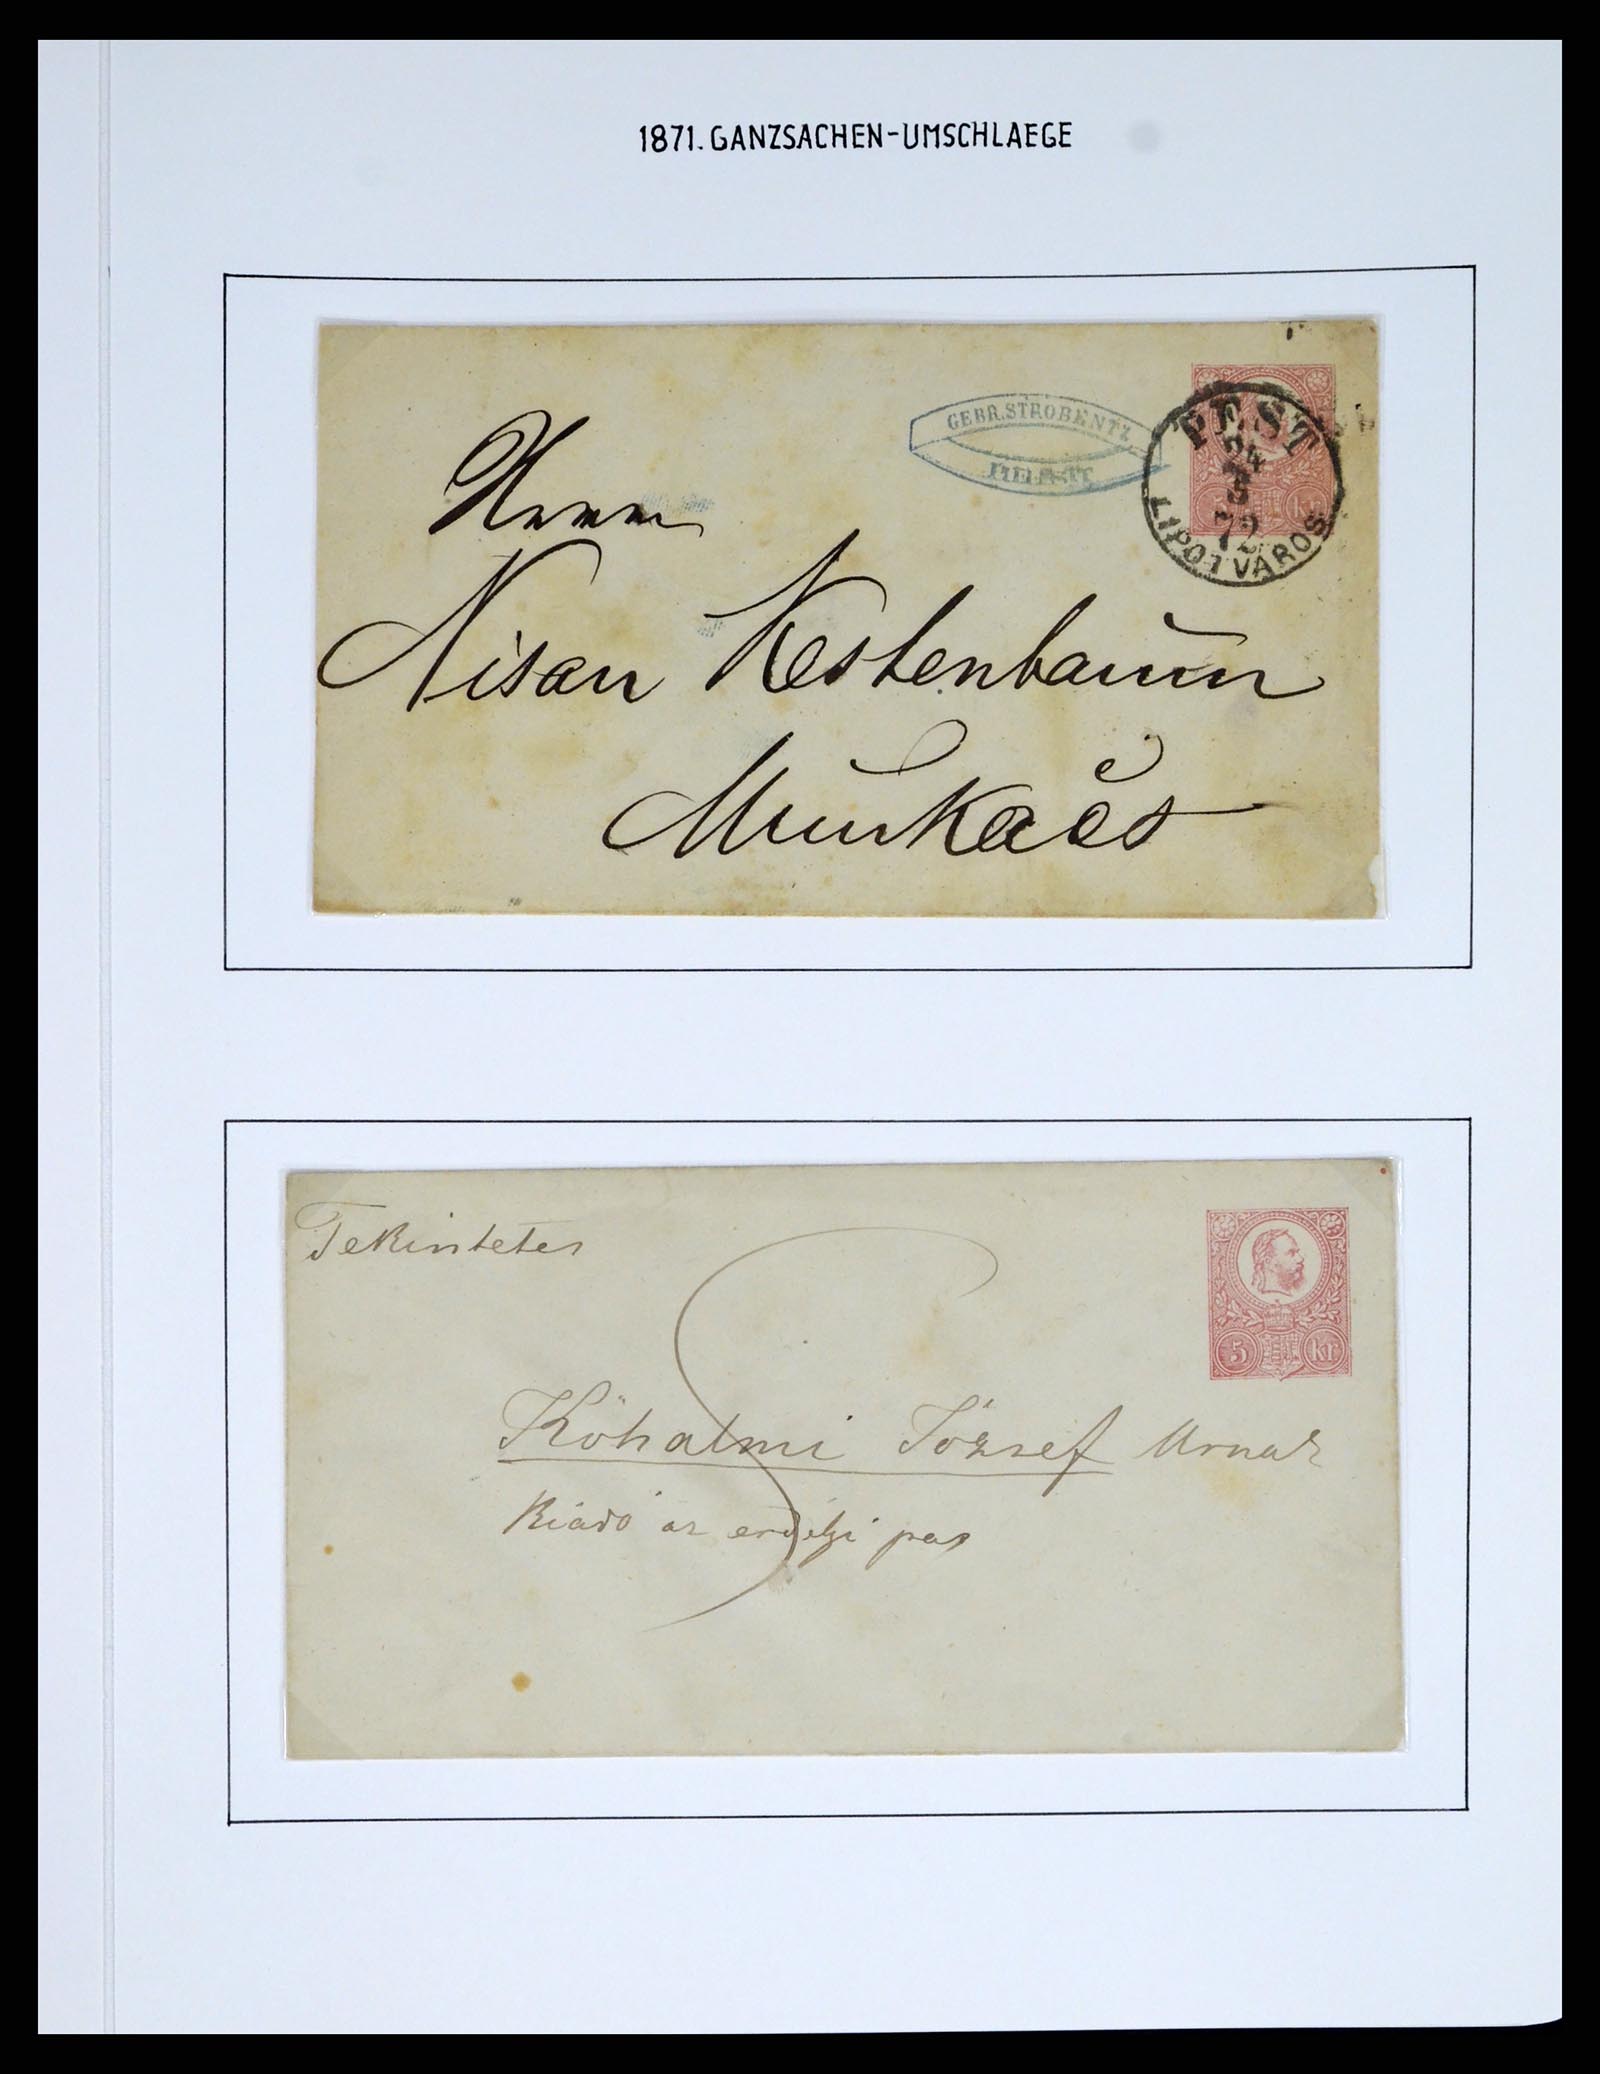 1871. GANZSACHEN-UMSCHLAEGE
GEBR. STROBENTZ
PEST
PEST
24
5
72
LIPOTVÁROS
kr
Herrn
Nisan Kestenbaum
Munkács
Tekintetes
5 kr
Kőhalmi József Urnak
Kiadó az erdélyi